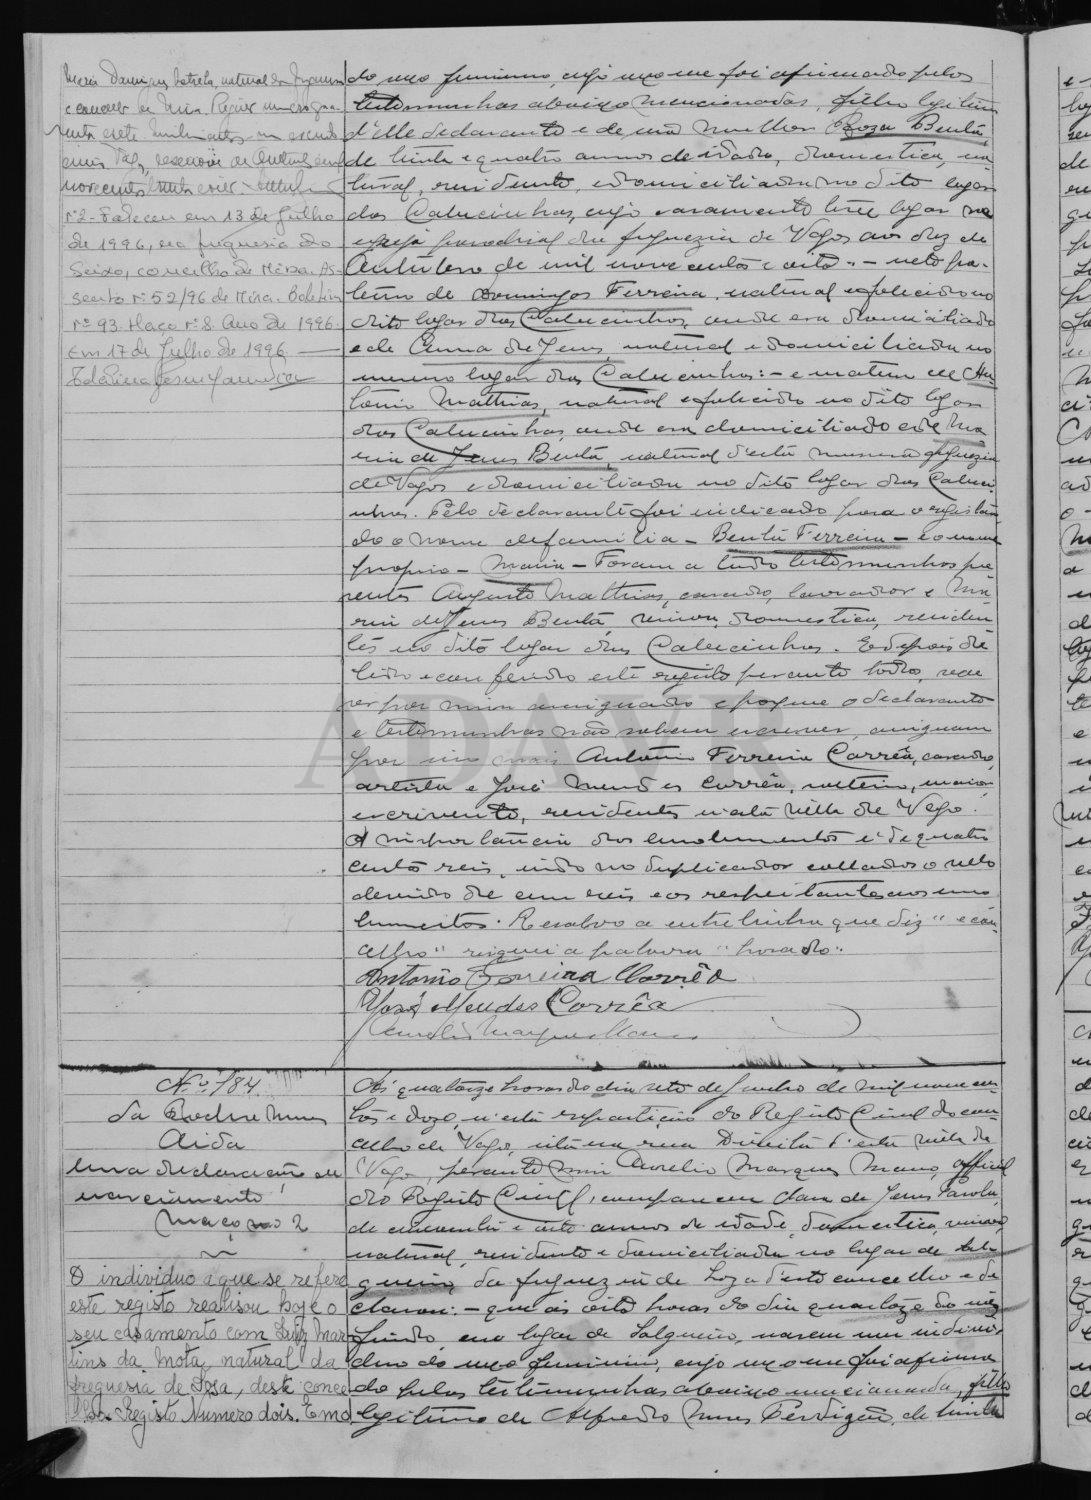 do sexo feminino, cujo sexo me foi afirmado pelas
testemunhas abaixo mencionadas, filho legitimo
d'elle declarante e de sua mulher Roza Benta,
de trinta e quatro annos de idade, domestica, na-
tural, residente, e domiciliada no dito logar
das Calucinhas, cujo casamento teve logar na
egreja parochial da freguezia de Vagos aos dez de
Outubro de mil nove centos e oito - neto pa-
terno de Domingos Ferreira, natural e falecido no
dito logar das Calucinhas, onde era domiciliado
e de Anna de Jesus, natural e domiciliada no
mesmo logar das Calucinhas: - e materno de An-
tonio Mathias, natural e falecido no dito logar
das Calucinhas, onde era domiciliado e de Ma-
ria de Jesus Benta, natural d'esta mesma freguezia
de Vagos e domiciliada no dito logar das Caluci-
nhas. Pelo declarante foi indicado para o registan-
do o nome de familia - Benta Ferreira - e o nome
proprio - Maria - Foram a tudo testemunhas pre-
sentes Augusto Mathias, casado, lavrador e Ma-
ria de Jesus Benta, viuva, domestica, residen-
tes no dito logar das Calucinhas. E depois de
lido e conferido este registo perante todos, vae
ser por mim assignado e porque o declarante
e testemunhas não sabem escrever, assignam
por mais Antonio Ferreira Corrêa, casado,
artista e José Mendes Corrêa, solteiro, maior,
escrivente, residentes n'esta villa de Vagos.
A importancia dos emolumentos é de quatro
centos reis, indo no duplicador collados o sello
devido de cem reis e os respeitantes aos emo-
lumentos. Resalvo a entrelinha que diz "e con-
celho" risquei a palavra "
Antonio Ferreira Corrêa
José Mendes Corrêa
Aurelio Marques Mano
Maria Domingues Estrela, natural da freguesia
e concelho de Mira. Registo numero
novecentos trinta e seis
Nº2 - Faleceu em 13 de Julho
de 1996, na freguesia do
Seixo, concelho de Mira. As-
sento nº 52/96 de Mira. Boletim
nº 93. Maço nº 8. Ano de 1996.
Em 17 de Julho de 1996.
Nº 184
da Rocha Nunes
Aida
Uma declaração de
nascimento,
Maço nº 2
O individuo a que se refere
este registo realisou hoje o
seu casamento com Luiz Mar-
tins da Mota, natural da
freguesia de Sosa, deste conce-
lho. Registo Numero dois. Em o
Ás quatorze horas do dia sete de Junho de mil nove cen-
tos e doze, n'esta repartição do Registo Civil do con-
celho de Vagos, sita na rua Direita d'esta villa de
Vagos, perante mim Aurelio Marques Mano, official
do Registo Civil, compareceu Clara de Jesus Parola,
de cincoenta e oito annos de idade, domestica, viuva,
natural, residente e domiciliada no logar de Sal-
gueiro, da freguezia de Soza d'este concelho e de-
clarou: - que ás oito horas do dia quatorze do mez
findo no logar de Salgueiro, nasceu um indivi-
duo do sexo feminino, cujo sexo me foi afirma-
do pelas testemunhas abaixo mencionadas, filho
legitimo de Alfredo Nunes Perdigão, de trinta
ADAVR